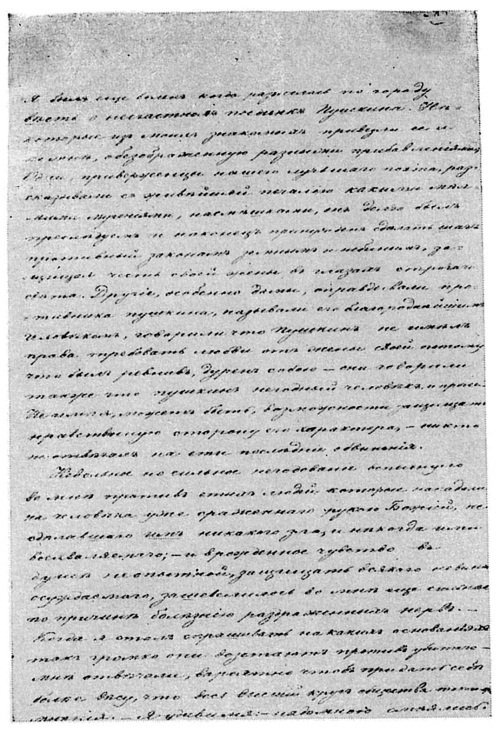 Я былъ еще боленъ когда разнеслась по городу
вѣсть о несчастномъ поединкѣ Пушкина. Нѣ-
которые изъ моихъ знакомыхъ привезли ее и
ко мнѣ, обезображенную разными прибавленіями,
одни, приверженцы нашего лучшаго поэта, раз-
сказывали съ живѣйшей печалью какими мел-
кими мученіями, насмѣшками, онъ долго былъ
преслѣдуемъ и наконецъ принужденъ сдѣлать шагъ
противный законамъ земнымъ и небеснымъ, за-
щищая честь своей жены въ глазахъ строгаго
свѣта. Другіе, особенно дамы, оправдывали про-
тивника Пушкина, называли его благороднѣйшимъ
человѣкомъ, говорили что Пушкинъ не имѣлъ
права требовать любви отъ жены своей, потому
что былъ ревнивъ, дуренъ собою – они говорили
также что Пушкинъ негодный человѣкъ, и проч.
Не имѣя, можетъ быть, возможности защищать
нравственную сторону его характера, – никто
не отвѣчалъ на эти послѣднія обвиненія.
Невольное но сильное негодованіе вспыхнуло
во мнѣ противъ этихъ людей которые нападали
на человѣка уже сраженнаго рукою Божіей, не
сдѣлавшаго имъ никакого зла, и нѣкогда ими
восхваляемаго; – и врожденное чувство въ
душѣ неопытной, защищать всякаго невинно
осуждаемаго, зашевелилось во мнѣ еще сильнѣе
по причинѣ болѣзнію раздраженныхъ нервъ. –
Когда я сталъ спрашивать на какихъ основаніяхъ
такъ громко они возстаютъ противъ убитаго –
мнѣ отвѣчали, вѣроятно чтобъ придать себѣ
болѣе вѣсу, что весь высшій кругъ общества
мнѣнія. – Я удивился – надо мною смѣялись.